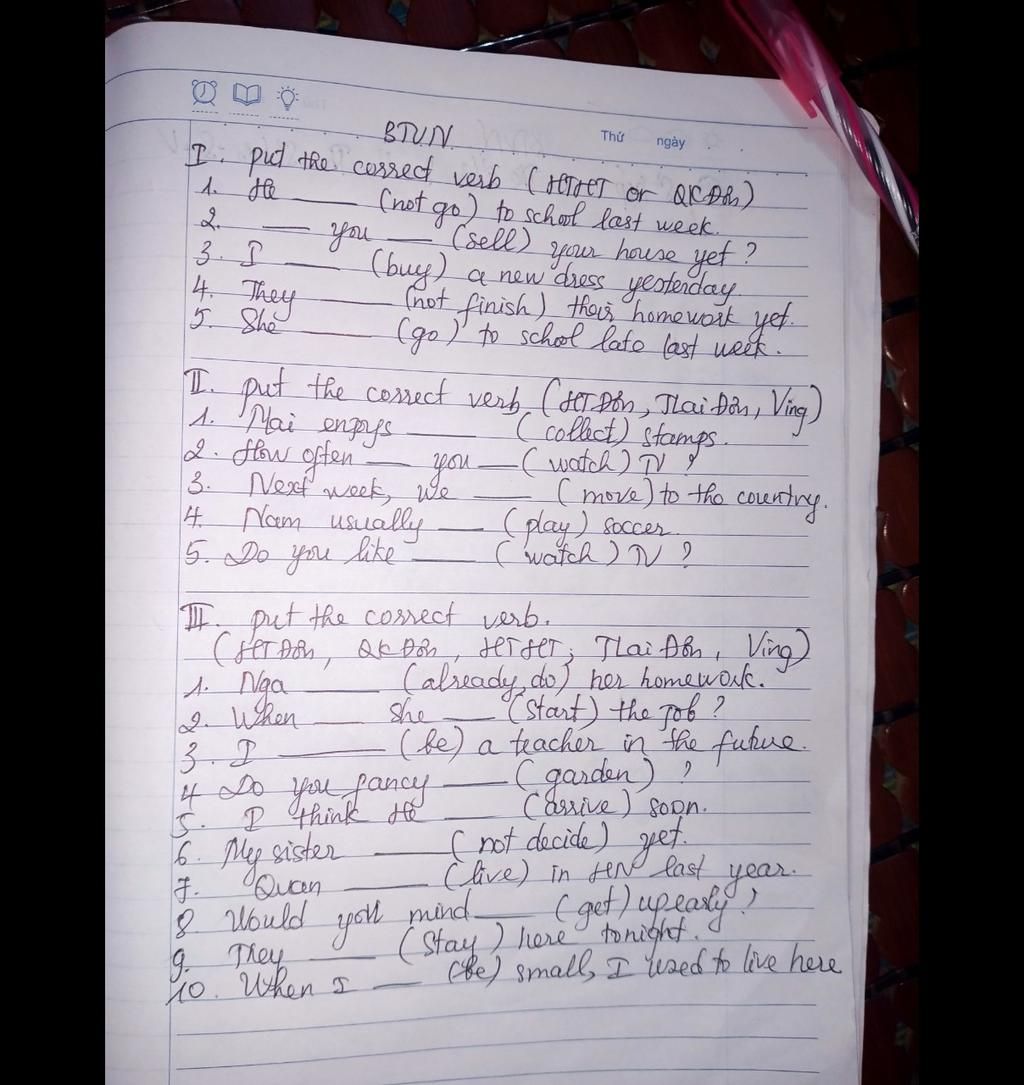 BTVN
Thứ ngày
I. put the correct verb (HTHT or QKĐơn)
1. He ____ (not go) to school last week.
2. ___ you ___ (sell) your house yet?
3. I ____ (buy) a new dress yesterday.
4. They ____ (not finish) their homework yet.
5. She ____ (go) to school late last week.
II. put the correct verb (HTĐơn, TLaiĐơn, Ving)
1. Mai enjoys ____ (collect) stamps.
2. How often ___ you ___ (watch) TV?
3. Next week, we ____ (move) to the country.
4. Nam usually ___ (play) soccer.
5. Do you like ____ (watch) TV?
III. put the correct verb.
(HTĐơn, QKĐơn, HTHT, TLaiĐơn, Ving)
1. Nga ____ (already, do) her homework.
2. When ___ she ___ (start) the job?
3. I ____ (be) a teacher in the future.
4 Do you fancy ____ (garden) ?
5. I think He ____ (arrive) soon.
6. My sister ____ (not decide) yet.
7. Quan ____ (live) in HN last year.
8 Would you mind ___ (get) up early?
9. They ____ (stay) here tonight.
10. When I ___ (be) small, I used to live here